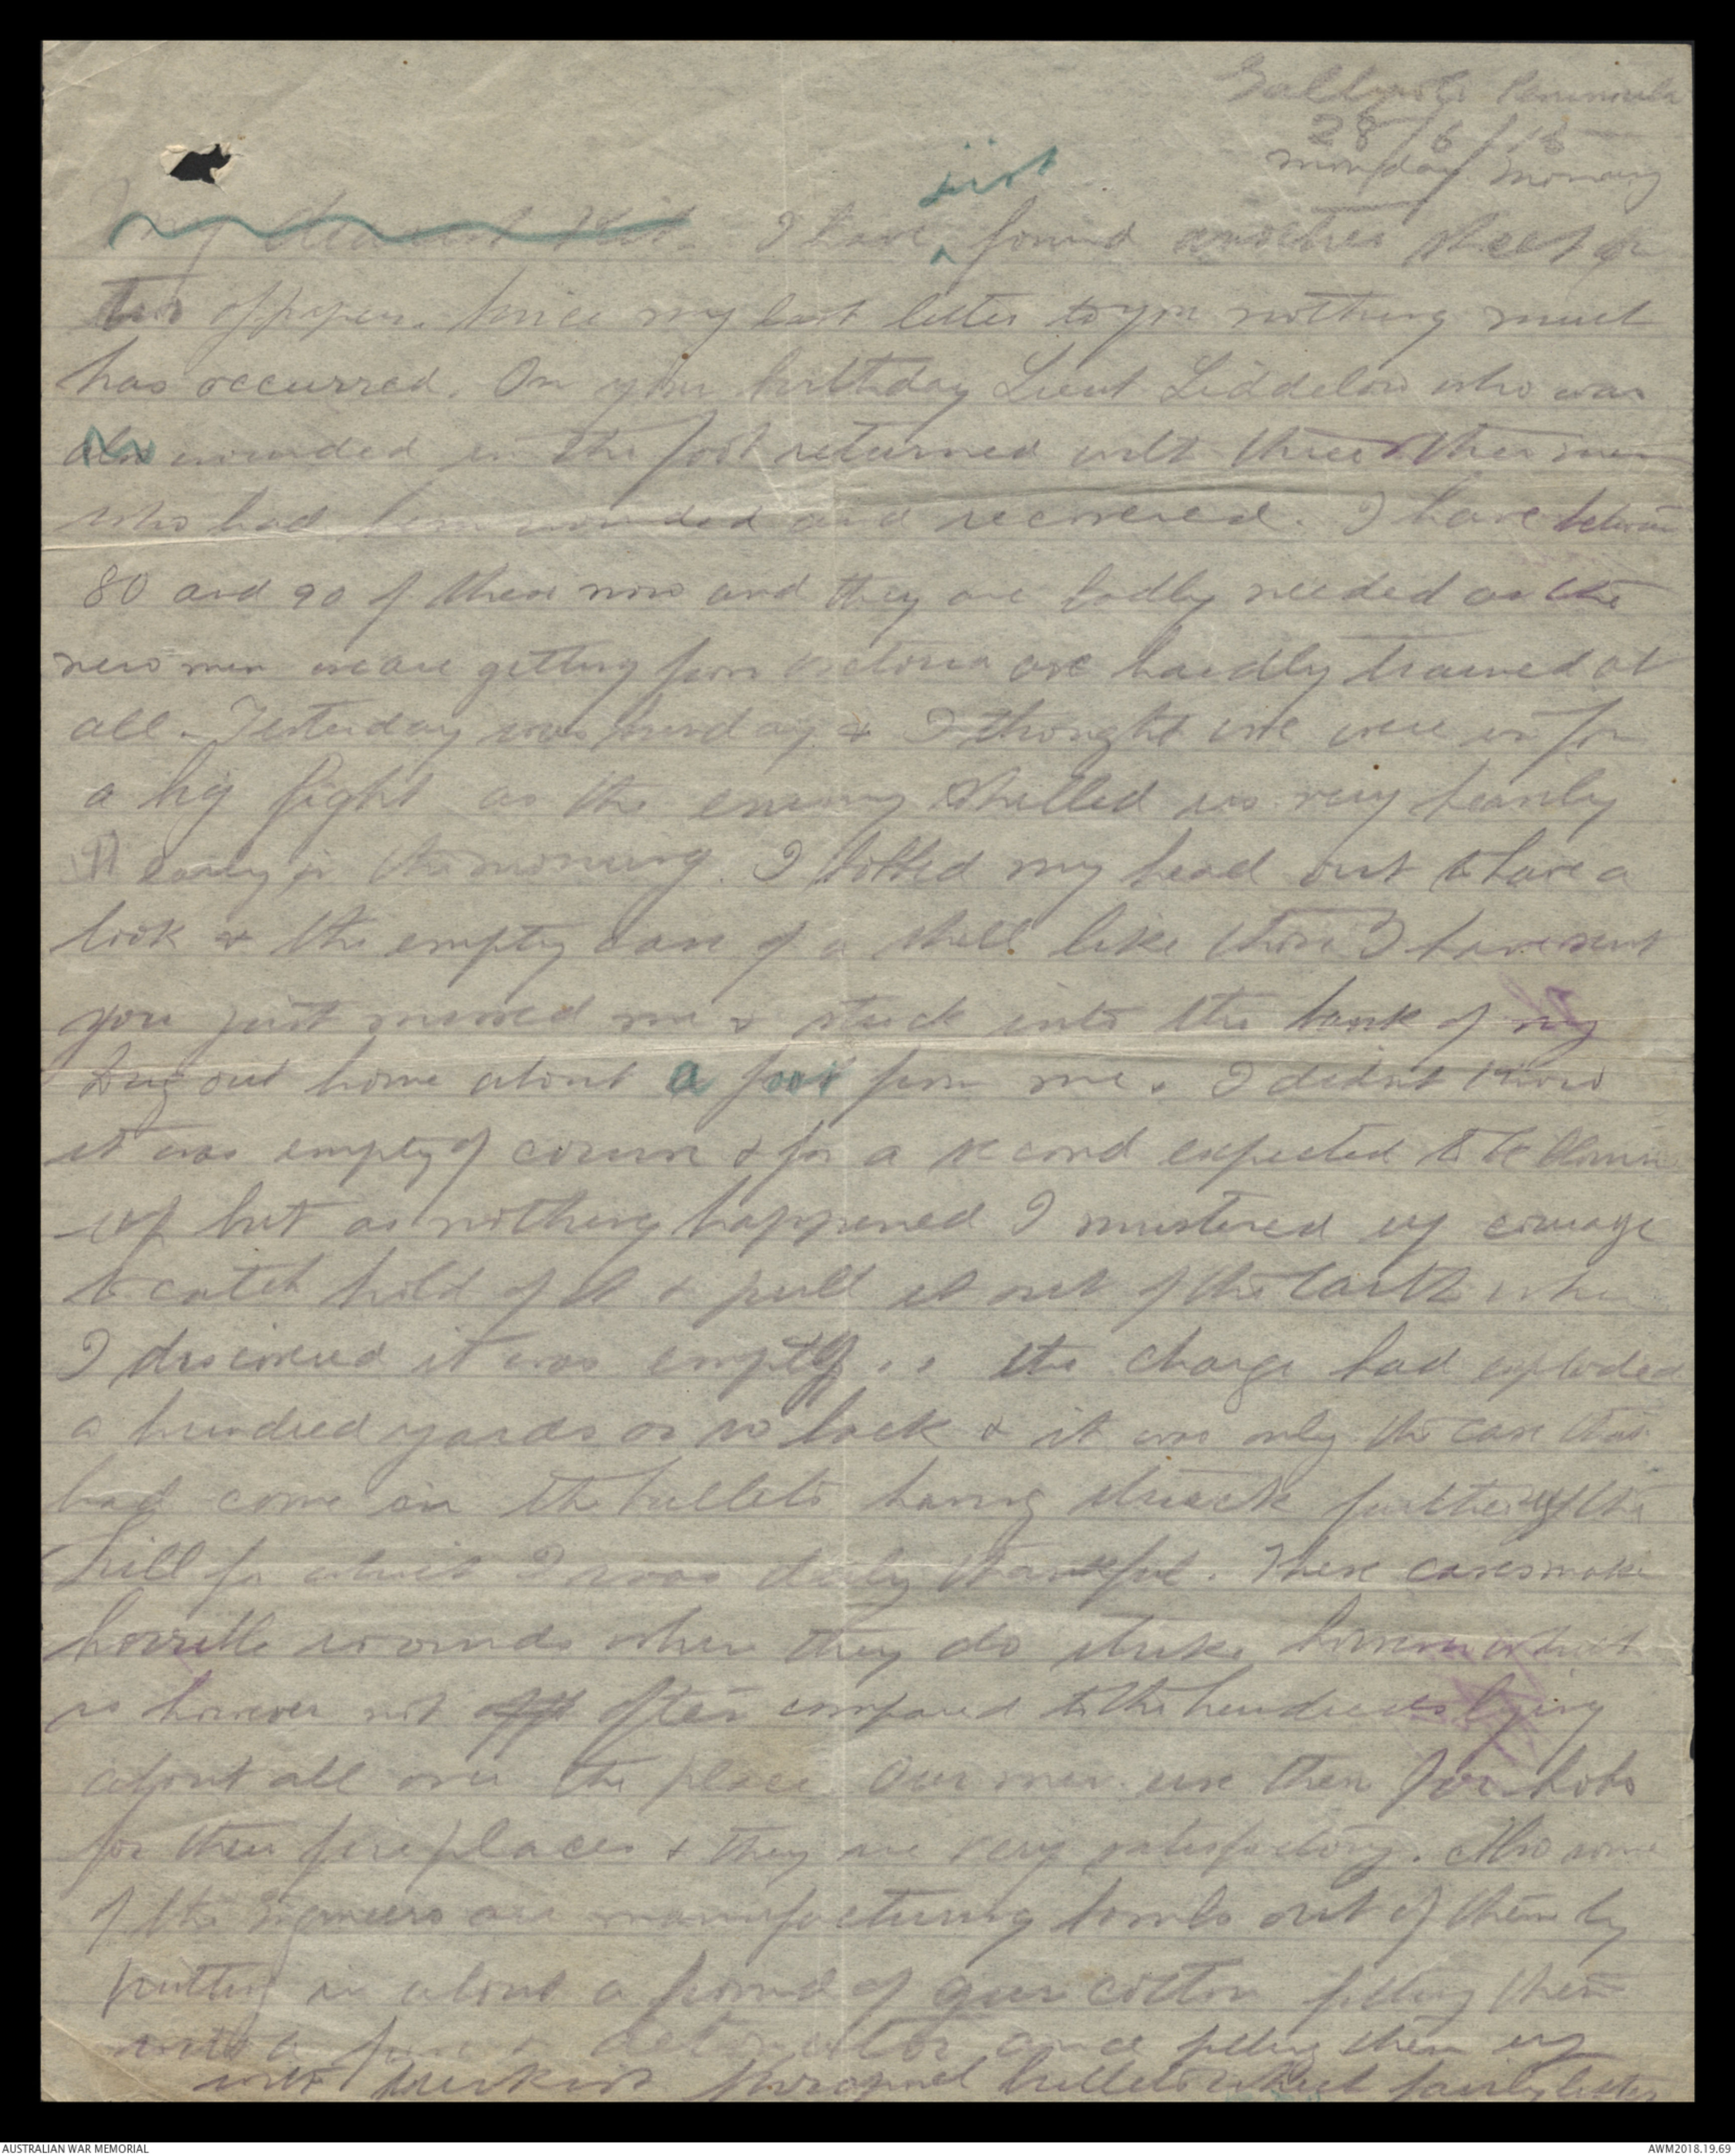 Gallipoli Peninsula
28/6/15
Monday Morning
My dearest Kit. I have just found another sheet or
two of paper. Since my last letter to you nothing much
has occurred. On your birthday Lieut Liddelow who was
also wounded in the foot returned with three other men
who had been wounded and recovered. I have between
80 and 90 of them now and they are badly needed as the
new men we are getting from Victoria are hardly trained at
all. Yesterday was Sunday & I thought we were in for
a big fight as the enemy shelled us very heavily
early in the morning. I bobbed my head out to have a
look & the empty case of a shell like those I have sent
you just missed me & stuck into the bank of my
dug out home about a foot from me. I didn't know
it was empty of course & for a second expected to be blown
up but as nothing happened I mustered up courage
to catch hold of it & pull it out of the earth when
I discovered it was empty .. the charge had exploded
a hundred yards or so back & it was only the case that
had come in the bullets having struck further up the
hill for which I was duly thankful. These cases make
horrible wounds when they do strike which
is however not often compared to the hundreds lying
about all over the place Our men use them for hobs
for their fireplaces & they are very satisfactory. Also some
of the Engineers are manufacturing bombs out of them by
putting in about a pound of gun cotton fitting them
with a fuse & detonator and filling them up
with Turkish shrapnel bullets which fairly
AUSTRALIAN WAR MEMORIAL
AWM2018.19.69